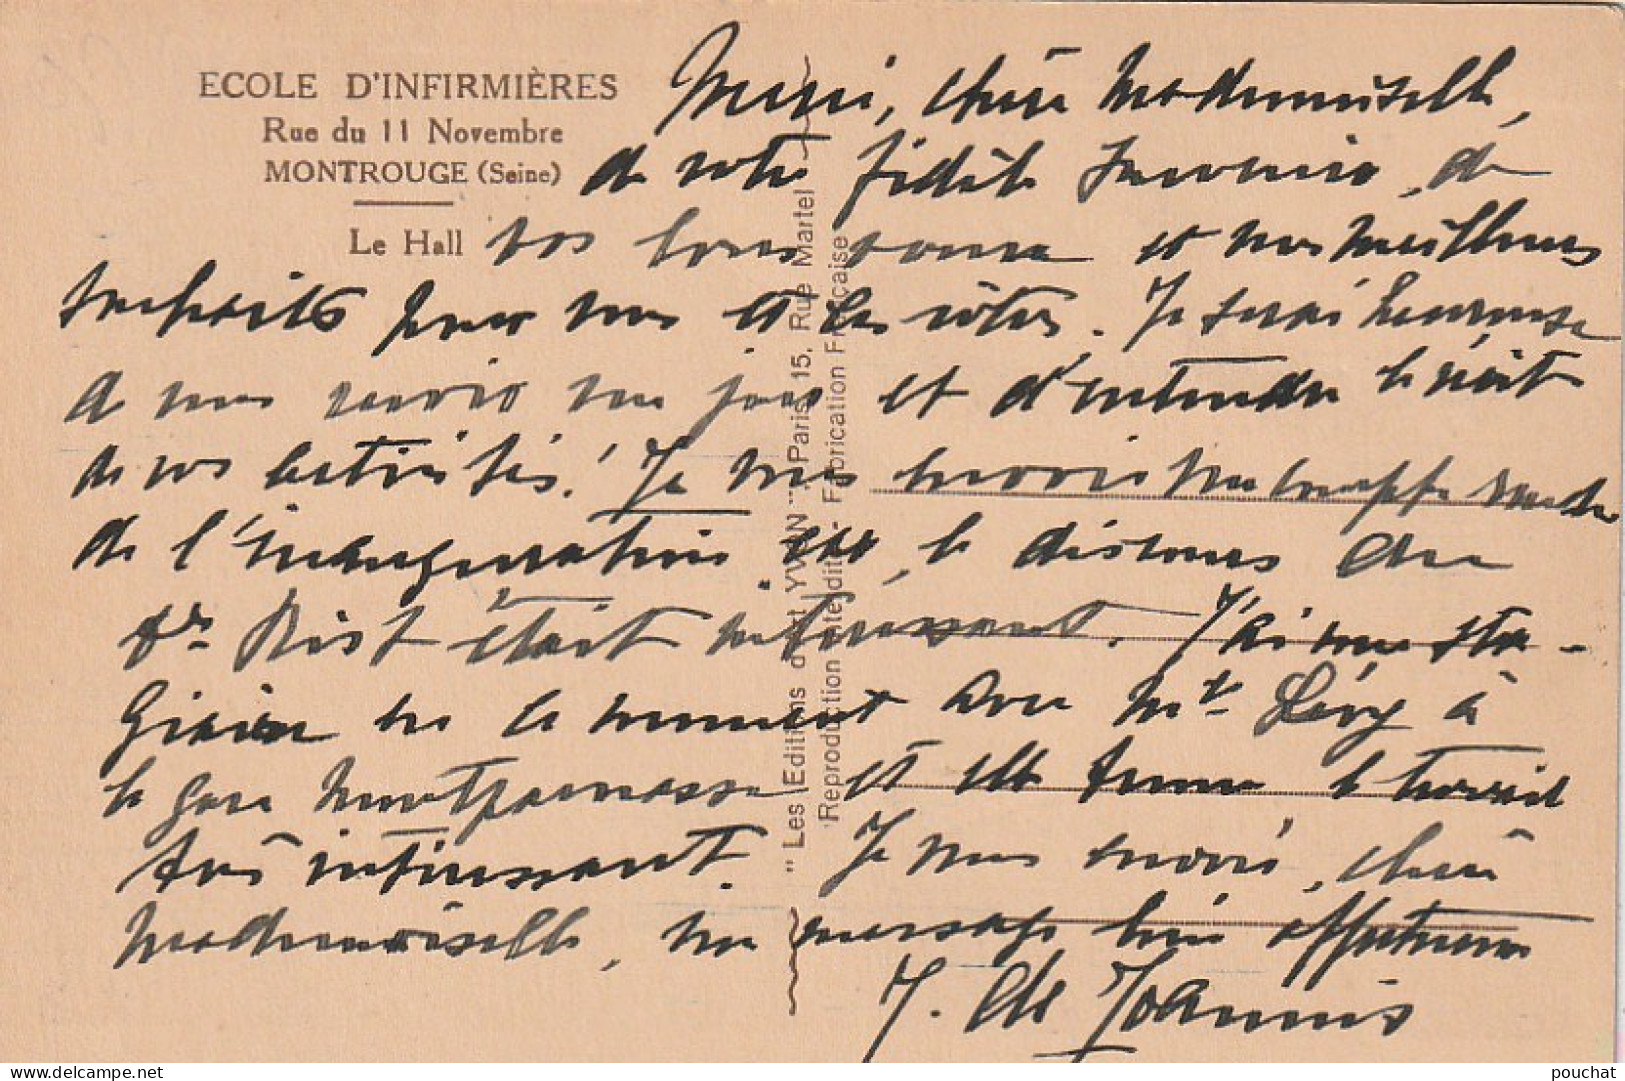 ECOLE D'INFIRMIÈRES
Rue du 11 Novembre
MONTROUGE (Seine)
Le Hall
Merci, chère Mademoiselle,
de votre fidèle souvenir, de
vos bons voeux et mes meilleurs
souhaits pour vous et les vôtres. Je serai heureuse
de vous revoir un jour et d'entendre le récit
de vos activités! Je vous envoie un compte rendu
de l'inauguration. le discours du
Dr Rist était intéressant. J'ai une sta-
giaire en ce moment avec Mlle Lévy à
la gare Montparnasse et elle trouve le travail
très intéressant. Je vous envoie, chère
Mademoiselle, un message bien affectueux
J. de Joannis
"Les Editions d'Art YVON" Paris, 15, Rue Martel
Reproduction Interdite - Fabrication Française
pouchat